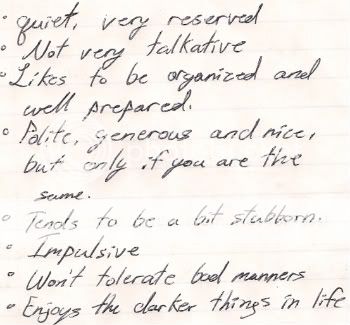 • quiet, very reserved
• Not very talkative
• Likes to be organized and
well prepared.
• Polite, generous and nice,
but only if you are the
same.
• Tends to be a bit stubborn.
• Impulsive
• Won't tolerate bad manners
• Enjoys the darker things in life